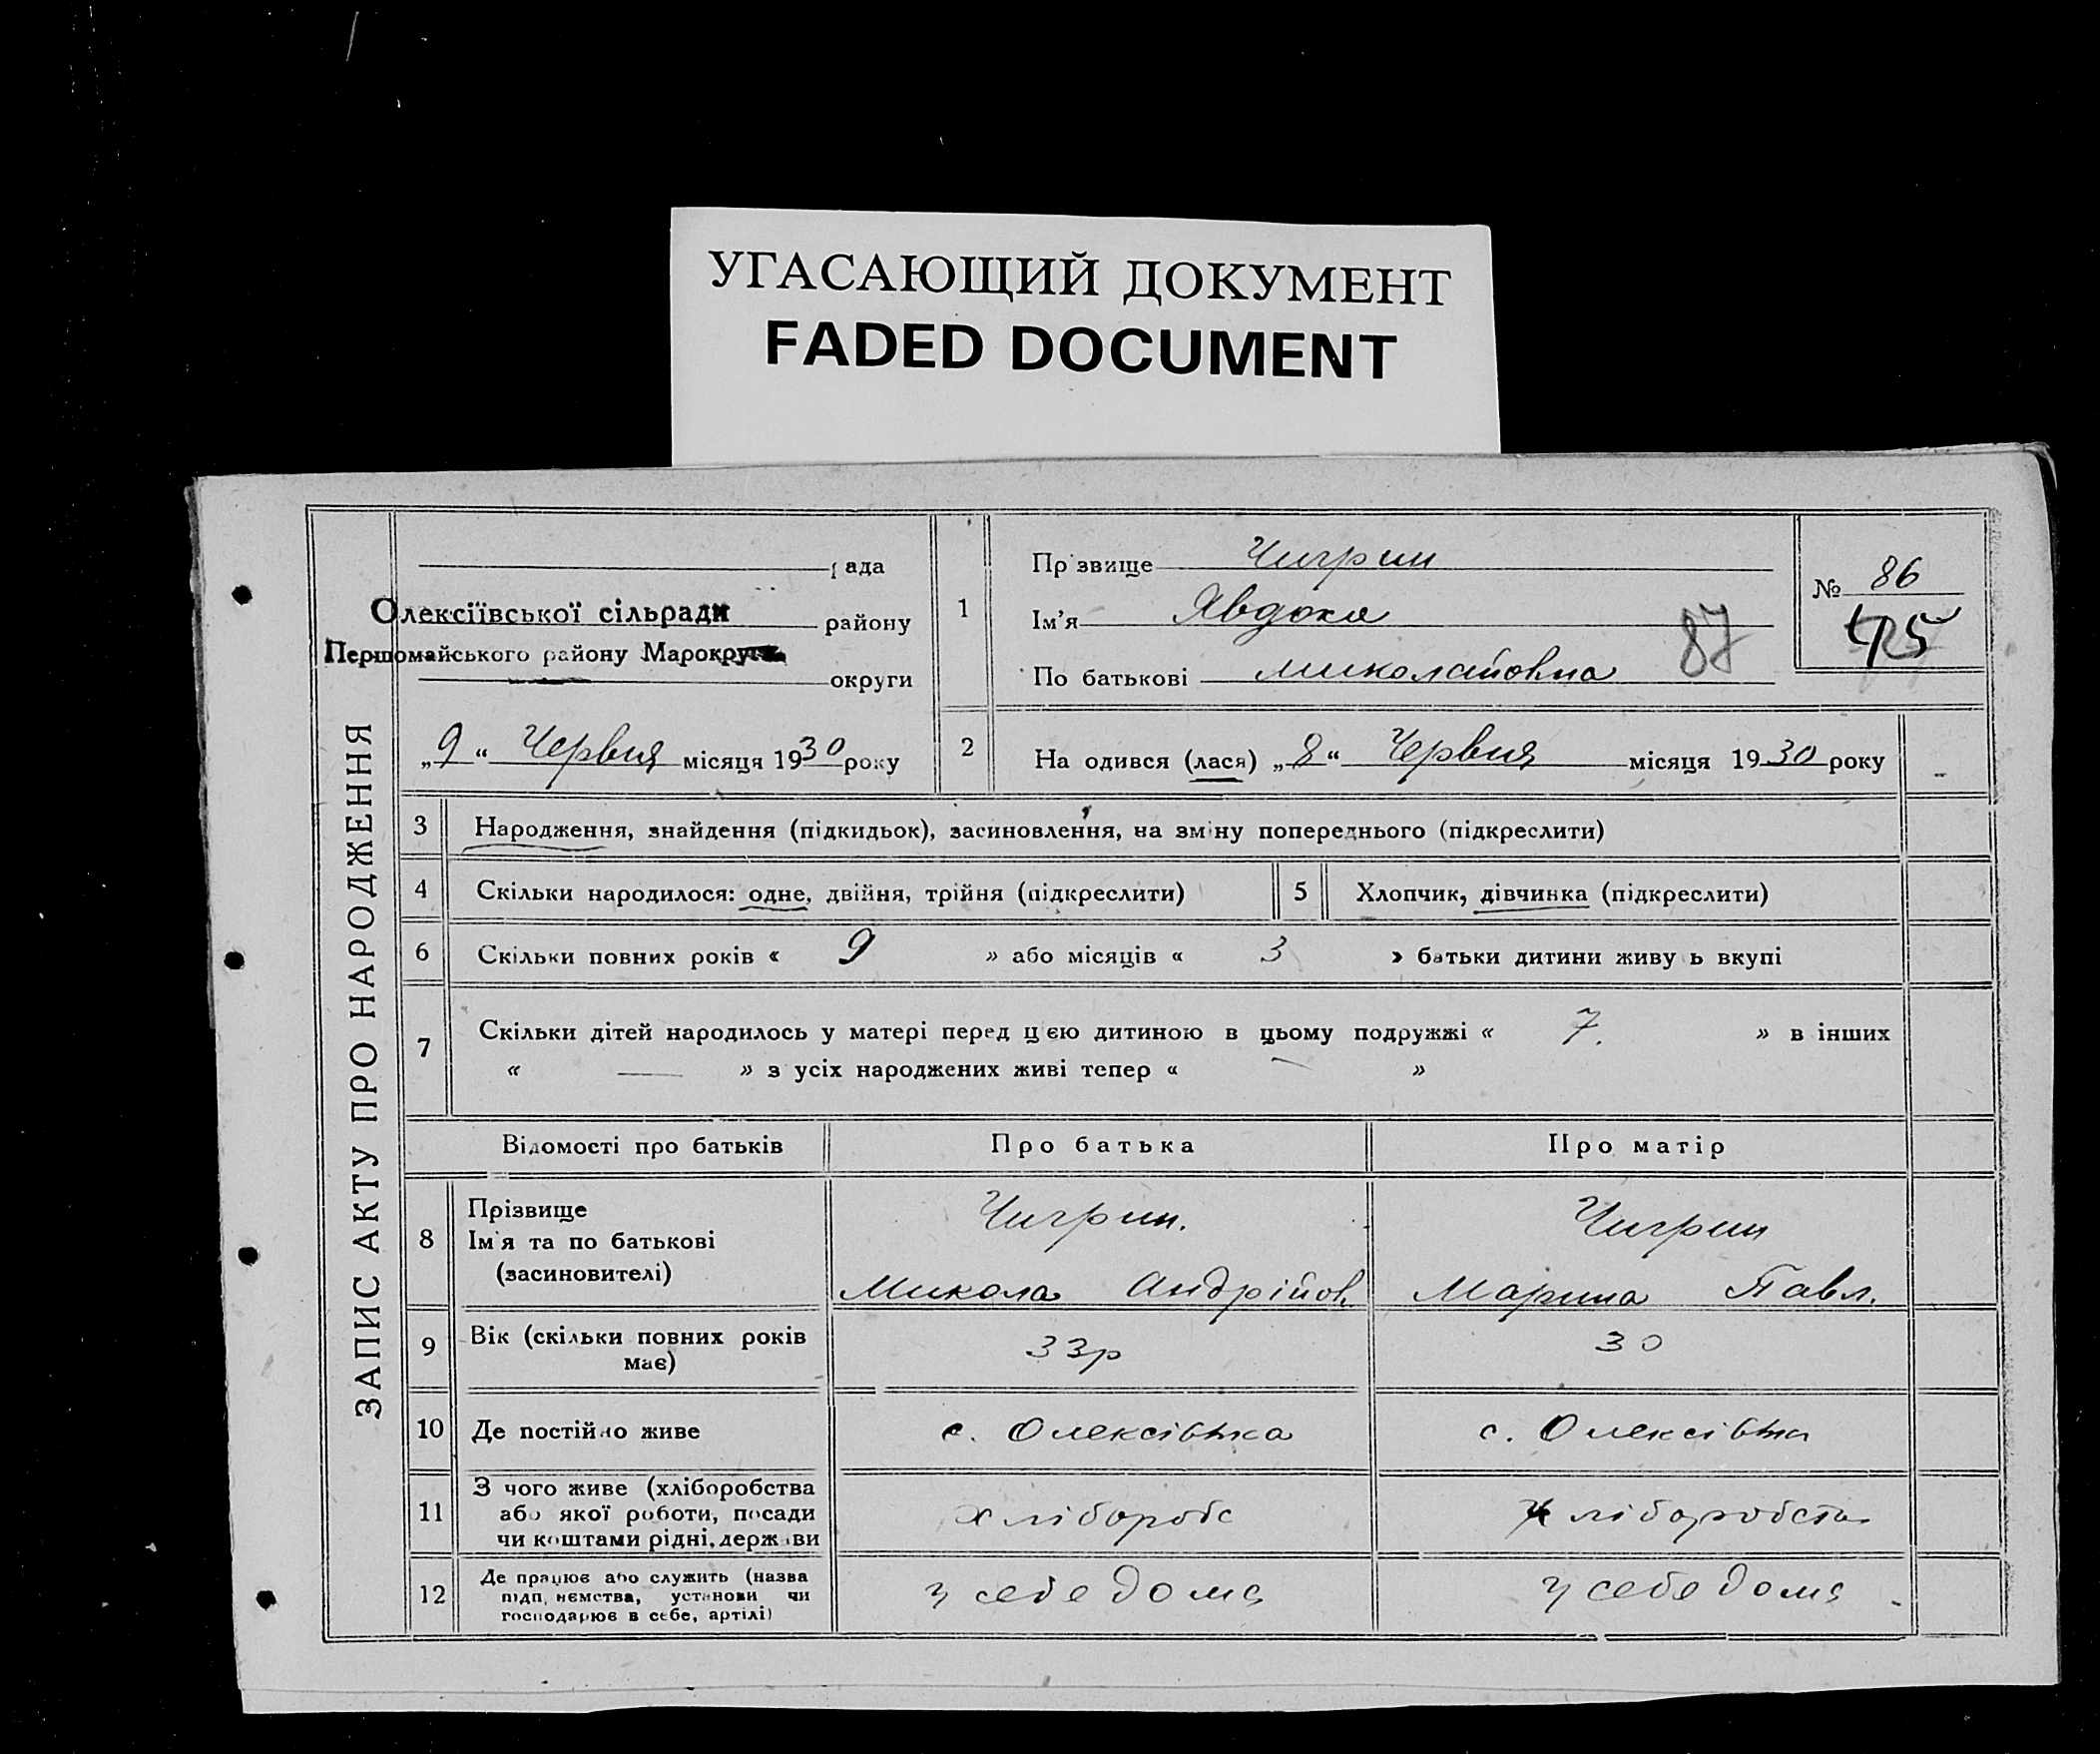 УГАСАЮЩИЙ ДОКУМЕНТ
FADED DOCUMENT
ЗАПИС АКТУ ПРО НАРОДЖЕННЯ
рада
Олексіївської сільради району
Першомайського району Марокруги
округи
„9“ Червня місяця 1930 року
1
Прізвище Чигрин
Ім'я Явдоха
По батькові Миколаївна
87
№ 86
2 На одився (лася) „8“ Червня місяця 1930 року
3 Народження, знайдення (підкидьок), засиновлення, на зміну попереднього (підкреслити)
4 Скільки народилося: одне, двійня, трійня (підкреслити)
5 Хлопчик, дівчинка (підкреслити)
6 Скільки повних років « 9 » або місяців « 3 » батьки дитини живуть вкупі
7 Скільки дітей народилось у матері перед цією дитиною в цьому подружжі « 7. » в інших
« — » з усіх народжених живі тепер « — »
Відомості про батьків Про батька Про матір
8 Прізвище
Ім'я та по батькові
(засиновителі)
Чигрин.
Микола Андрійов.
Чигрин
Марина Павл.
9 Вік (скільки повних років
має)
33р
30
10 Де постійно живе с. Олексівка с. Олексівка
11 З чого живе (хліборобства
або якої роботи, посади
чи коштами рідні, держави
хлібороbс
хліборобство
12 Де працює або служить (назва
підп. немства, установи чи
господарює в себе, артілі)
у себе дома
у себе дома